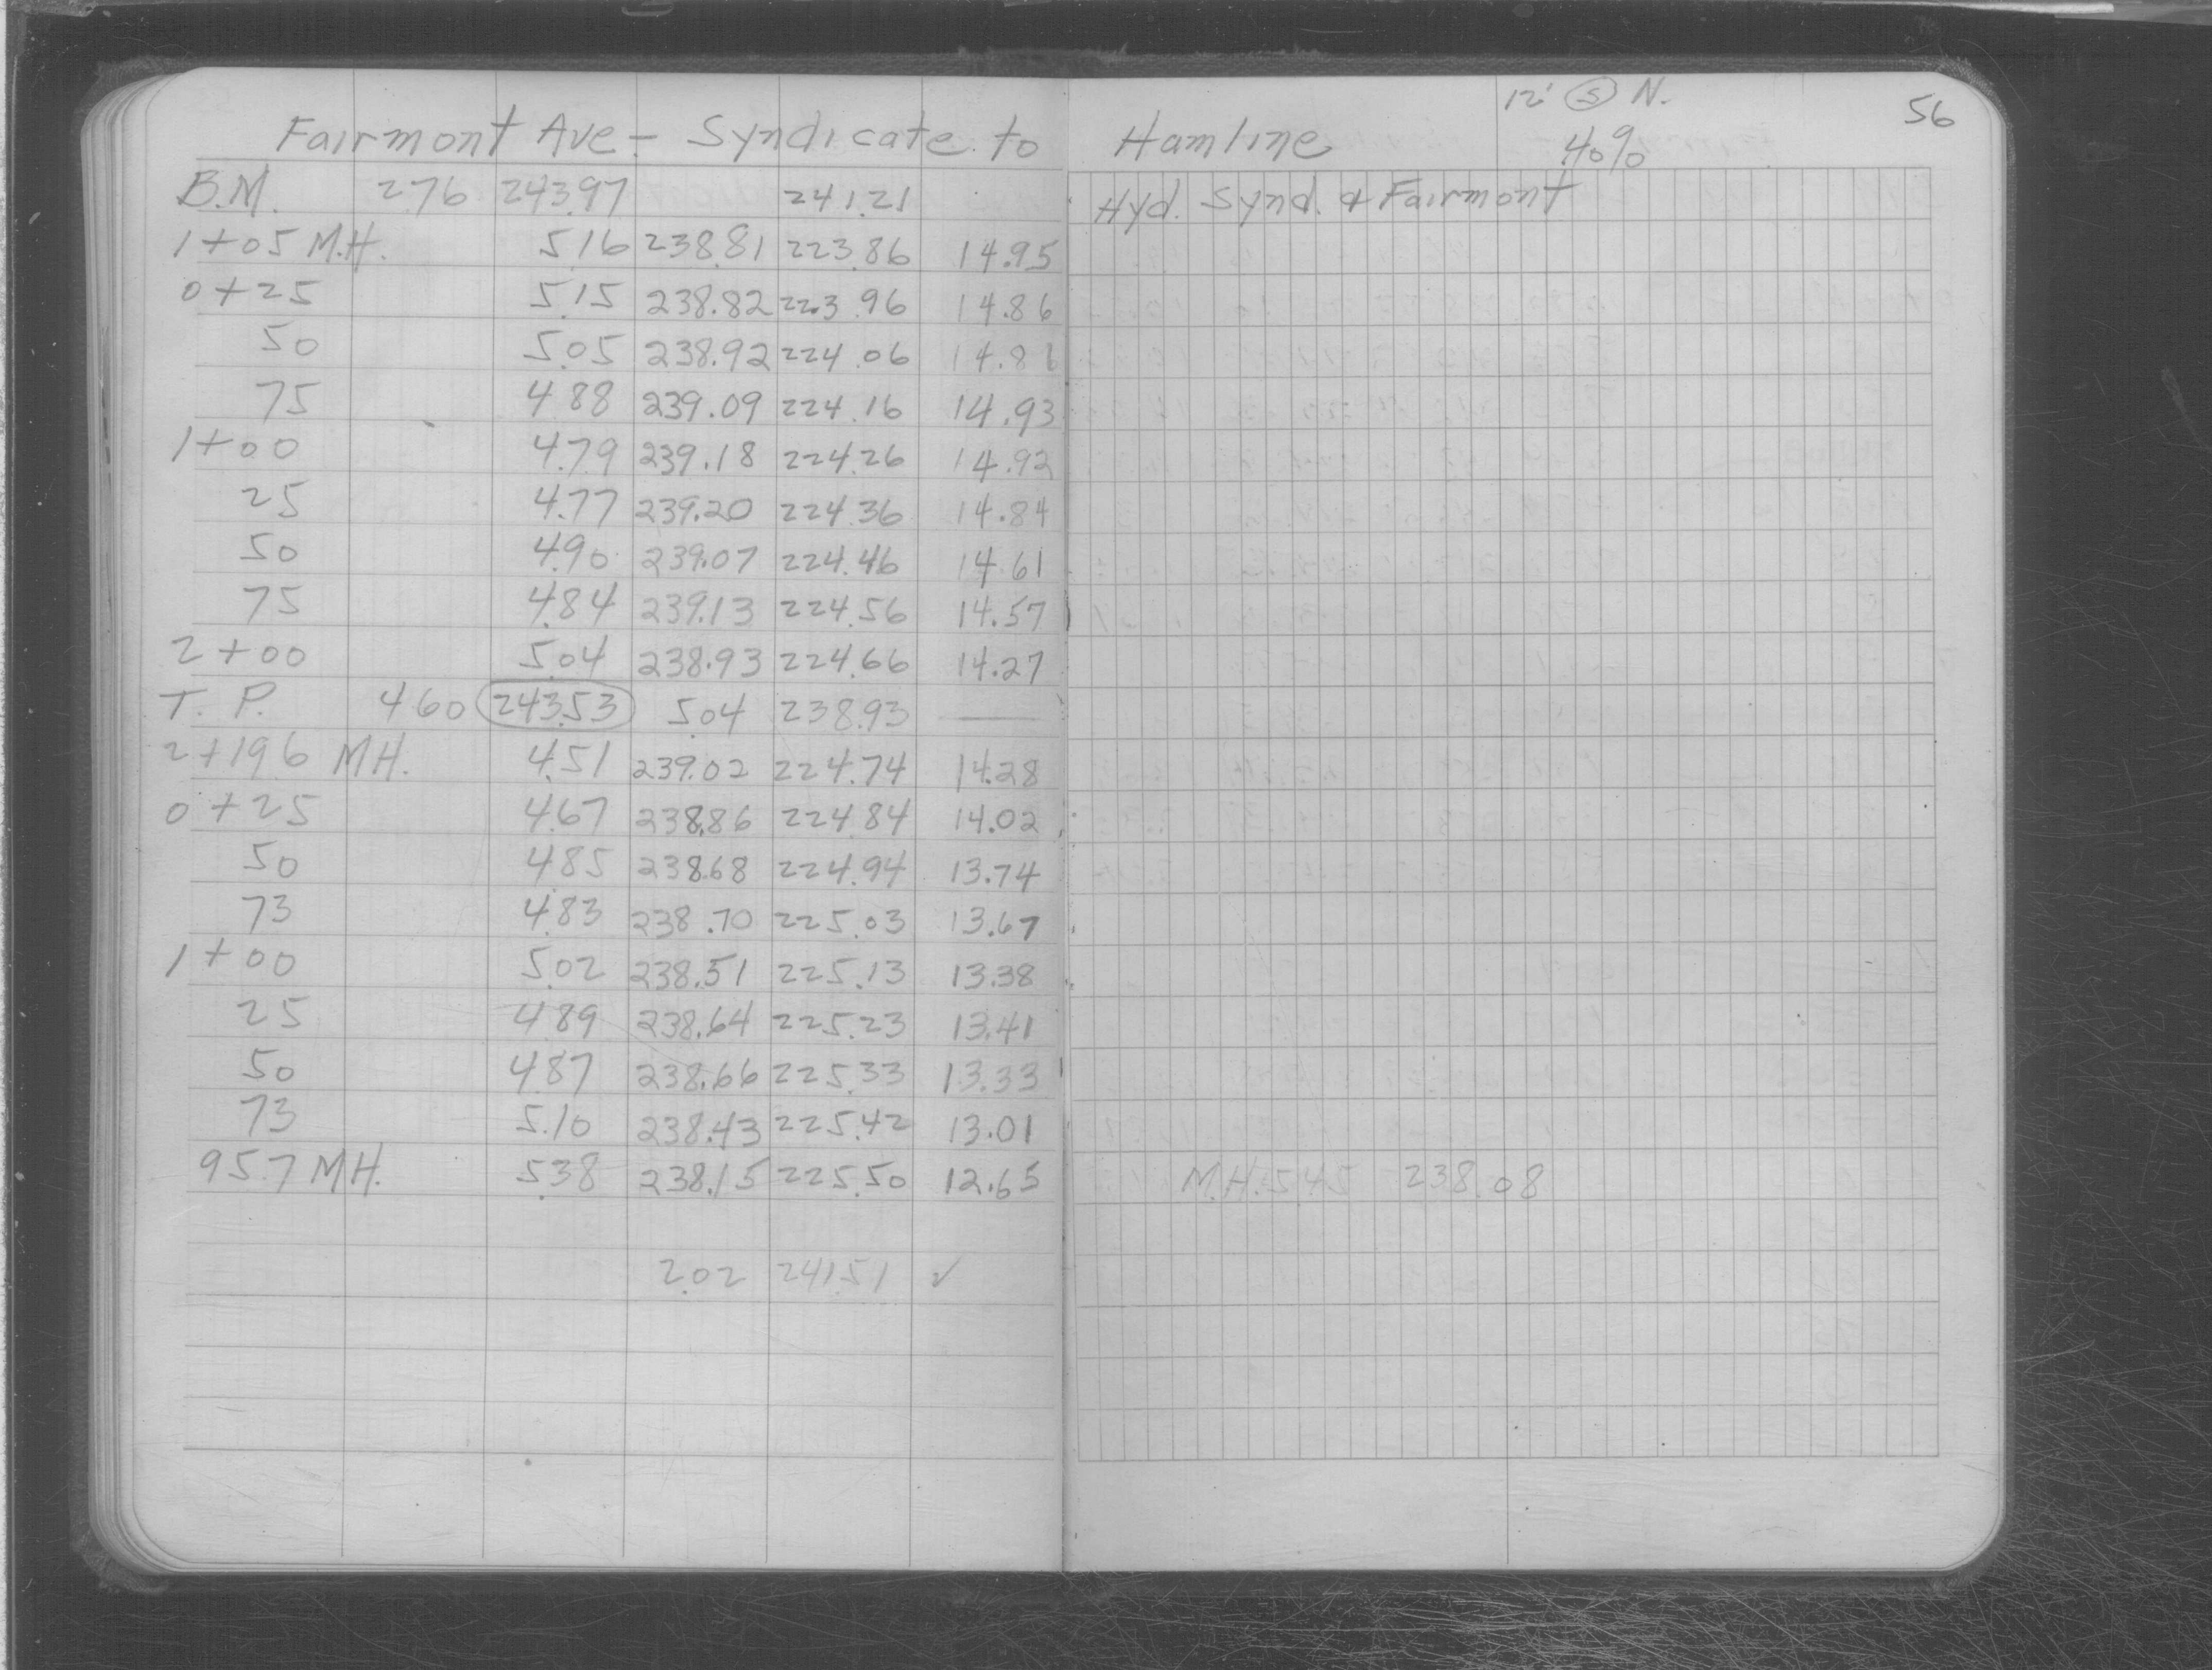 12' (S) N. 56
Fairmont Ave - Syndicate to Hamline .40%
B.M. 2.76 243.97 241.21 Hyd. Synd. & Fairmont
1+05 M.H. 5.16 238.81 223.86 14.95
0+25 5.15 238.82 223.96 14.86
50 5.05 238.92 224.06 14.86
75 4.88 239.09 224.16 14.93
1+00 4.79 239.18 224.26 14.92
25 4.77 239.20 224.36 14.84
50 4.90 239.07 224.46 14.61
75 4.84 239.13 224.56 14.57
2+00 5.04 238.93 224.66 14.27
T.P. 4.60 243.53 5.04 238.93 —
2+19.6 MH. 4.51 239.02 224.74 14.28
0+25 4.67 238.86 224.84 14.02
50 4.85 238.68 224.94 13.74
73 4.83 238.70 225.03 13.67
1+00 5.02 238.51 225.13 13.38
25 4.89 238.64 225.23 13.41
50 4.87 238.66 225.33 13.33
73 5.10 238.43 225.42 13.01
95.7 MH. 5.38 238.15 225.50 12.65 M.H. 5.45 238.08
2.02 241.51 ✓